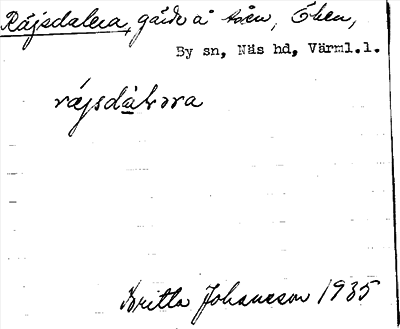 Råjsdalera, gärde å toen, Öhen,
By sn, Näs hd, Värml.l.
råjsdàlvora
Britta Johansson 1935